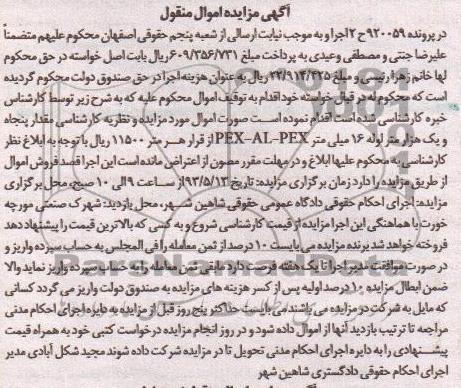 آگهی مزایده اموال منقول
در پرونده ۹۲۰۰۵۹ ح ۲ اجرا و به موجب نیابت ارسالی از شعبه پنجم حقوقی اصفهان محکوم علیهم متضمناً
علیرضا جنتی و مصطفی وعیدی به پرداخت مبلغ ۶۰۹/۳۵۶/۷۳۱ ریال بابت اصل خواسته در حق محکوم
لها خانم زهرا رئیسی و مبلغ ۲۴/۹۱۴/۳۲۵ ریال به عنوان هزینه اجرا در حق صندوق دولت محکوم گردیده
است که محکوم له در قبال خواسته خود اقدام به توقیف اموال محکوم علیه که به شرح زیر توسط کارشناس
خبره کارشناسی شده است اقدام نموده است صورت اموال مورد مزایده و نظریه کارشناسی مقدار پنجاه
و یک هزار متر لوله ۱۶ میلی متر PEX-AL-PEX از قرار هر متر ۱۱۵۰۰ ریال با توجه به ابلاغ نظر
کارشناسی به محکوم علیها ابلاغ و در مهلت مقرر مصون از اعتراض مانده است این اجرا قصد فروش اموال
از طریق مزایده را دارد زمان برگزاری مزایده: تاریخ ۹۳/۵/۱۲ از ساعت ۹ الی ۱۰ صبح، محل برگزاری
مزایده: اجرای احکام حقوقی دادگاه عمومی حقوقی شاهین شهر، محل بازدید: شهرک صنعتی مورچه
خورت با هماهنگی این اجرا مزایده از قیمت کارشناسی شروع و به کسی که بالاترین قیمت را پیشنهاد دهد
فروخته خواهد شد برنده مزایده می بایست ۱۰ درصد از ثمن معامله را فی المجلس به حساب سپرده واریز و
در صورت موافقت مدیر اجرا تا یک هفته فرصت دارد مابقی ثمن معامله را به حساب سپرده واریز نماید والا
ضمن ابطال مزایده ۱۰ درصد اولیه پس از کسر هزینه های مزایده به صندوق دولت واریز می گردد کسانی
که مایل به شرکت در مزایده می باشند می بایست حداکثر پنج روز قبل از مزایده به دایره اجرای احکام مدنی
مراجعه تا ترتیب بازدید آنها از اموال داده شود و در روز انجام مزایده درخواست کتبی خود به همراه قیمت
پیشنهادی را به دایره اجرای احکام مدنی تحویل تا در مزایده شرکت داده شوند مجید شکل آبادی مدیر
اجرای احکام حقوقی دادگستری شاهین شهر
ParsNamadData